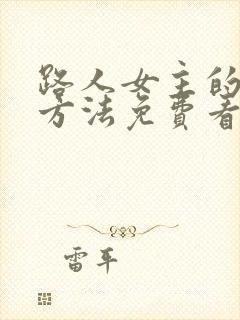 路人女主的
方法免费看
雷平